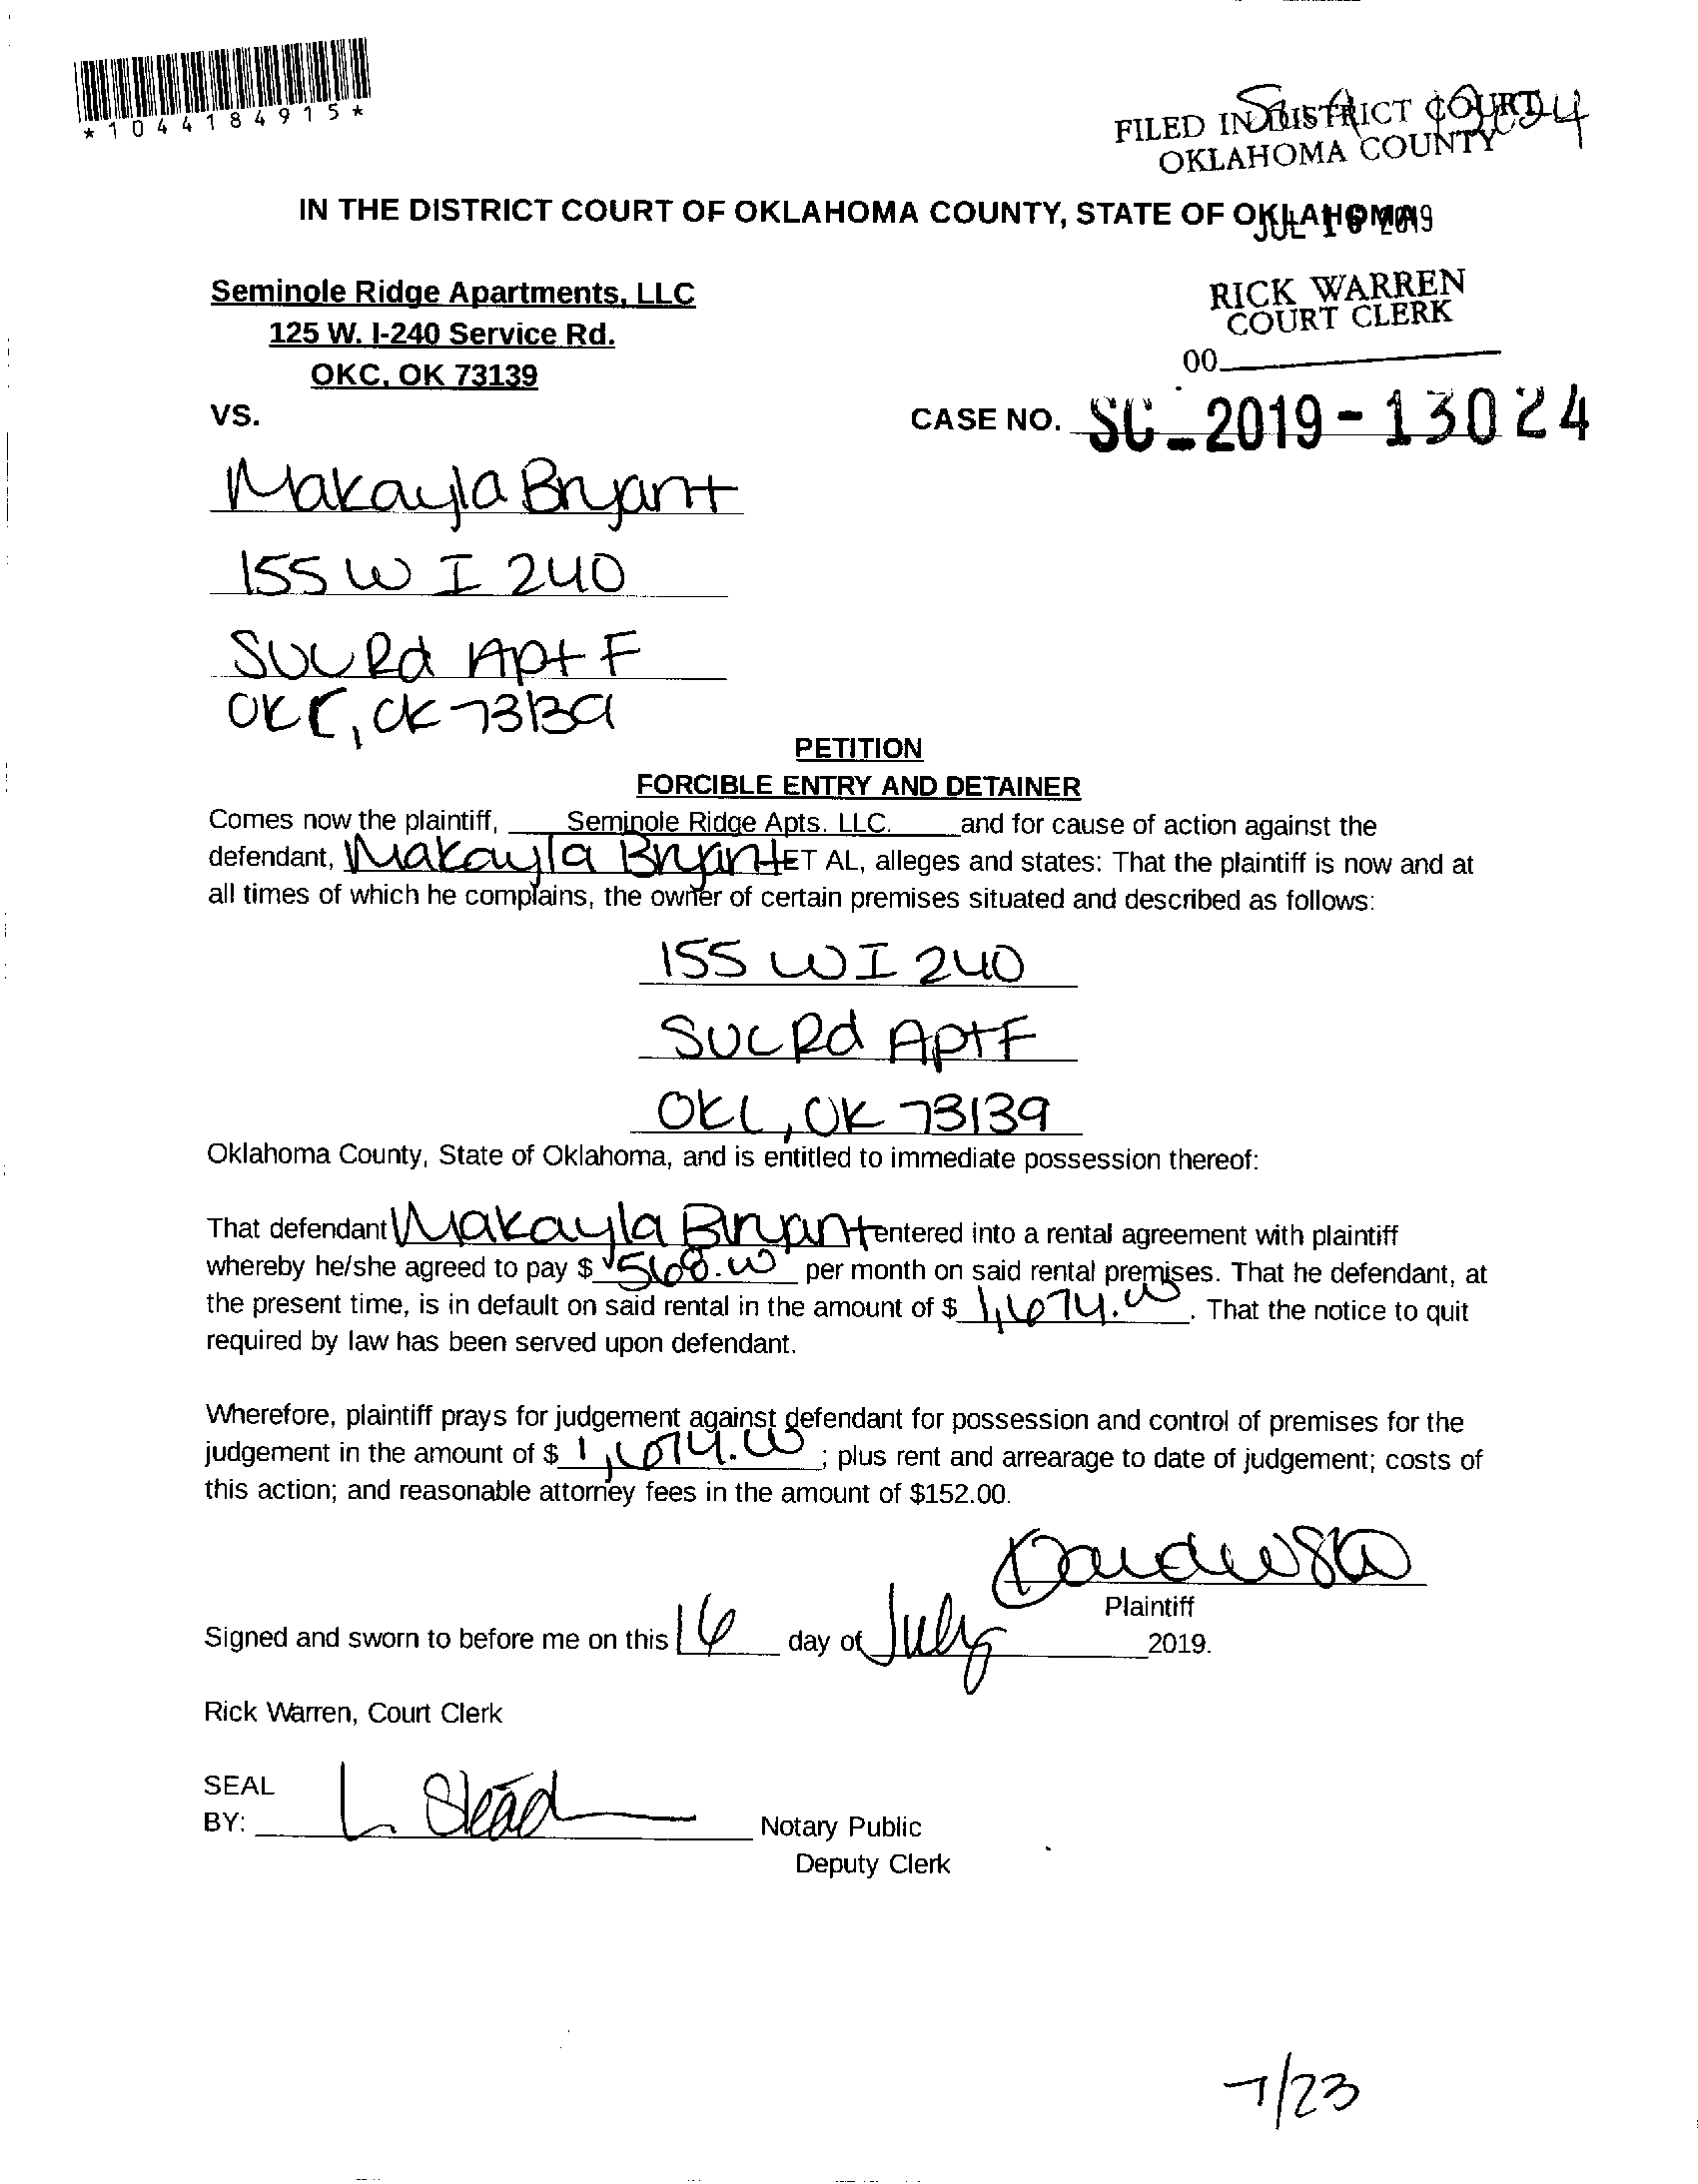 *1044184915*
FILED IN DISTRICT COURT
OKLAHOMA COUNTY
IN THE DISTRICT COURT OF OKLAHOMA COUNTY, STATE OF OKLAHOMA
JUL 16 2019
Seminole Ridge Apartments, LLC
RICK WARREN
COURT CLERK
125 W. I-240 Service Rd.
00
OKC, OK 73139
VS.
CASE NO. SC-2019-13024
Makayla Bryant
155 W I 240
SVC Rd Apt F
OKC, OK 73139
PETITION
FORCIBLE ENTRY AND DETAINER
Comes now the plaintiff, Seminole Ridge Apts. LLC. and for cause of action against the
defendant, Makayla Bryant ET AL, alleges and states: That the plaintiff is now and at
all times of which he complains, the owner of certain premises situated and described as follows:
155 W I 240
SVC Rd Apt F
OKC, OK 73139
Oklahoma County, State of Oklahoma, and is entitled to immediate possession thereof:
That defendant Makayla Bryant entered into a rental agreement with plaintiff
whereby he/she agreed to pay $ 568.00 per month on said rental premises. That he defendant, at
the present time, is in default on said rental in the amount of $ 1,674.00. That the notice to quit
required by law has been served upon defendant.
Wherefore, plaintiff prays for judgement against defendant for possession and control of premises for the
judgement in the amount of $ 1,674.00; plus rent and arrearage to date of judgement; costs of
this action; and reasonable attorney fees in the amount of $152.00.
Plaintiff
Signed and sworn to before me on this 16 day of July 2019.
Rick Warren, Court Clerk
SEAL
BY: L Stead Notary Public
Deputy Clerk
7/23